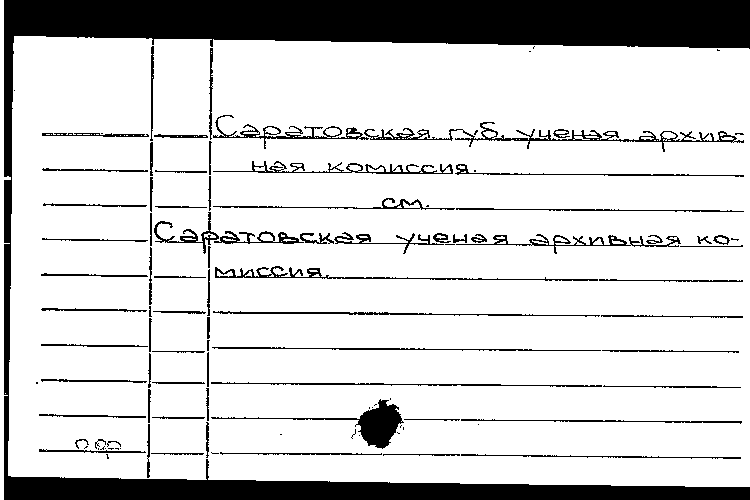 Саратовская губ. ученая архив-
ная комиссия.
см.
Саратовская ученая архивная ко-
миссия.